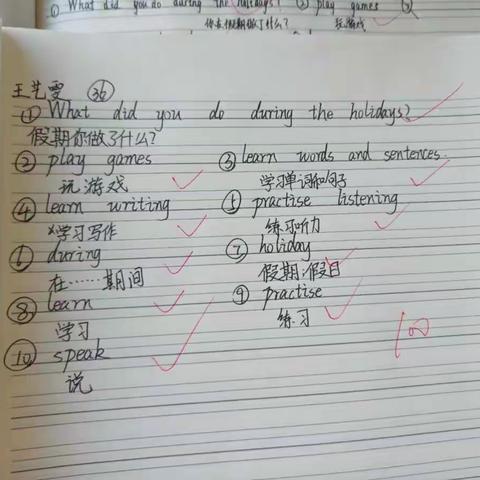 ① What did you do during the holidays? ② play games ③
你在假期做了什么? 玩游戏
王艺雯 36
① What did you do during the holidays?
假期你做了什么?
② play games ③ learn words and sentences.
玩游戏 学习单词和句子
④ learn writing ⑤ practise listening
学习写作 练习听力
⑥ during ⑦ holiday
在……期间 假期;假日
⑧ learn ⑨ practise
学习 练习
⑩ speak
说
100